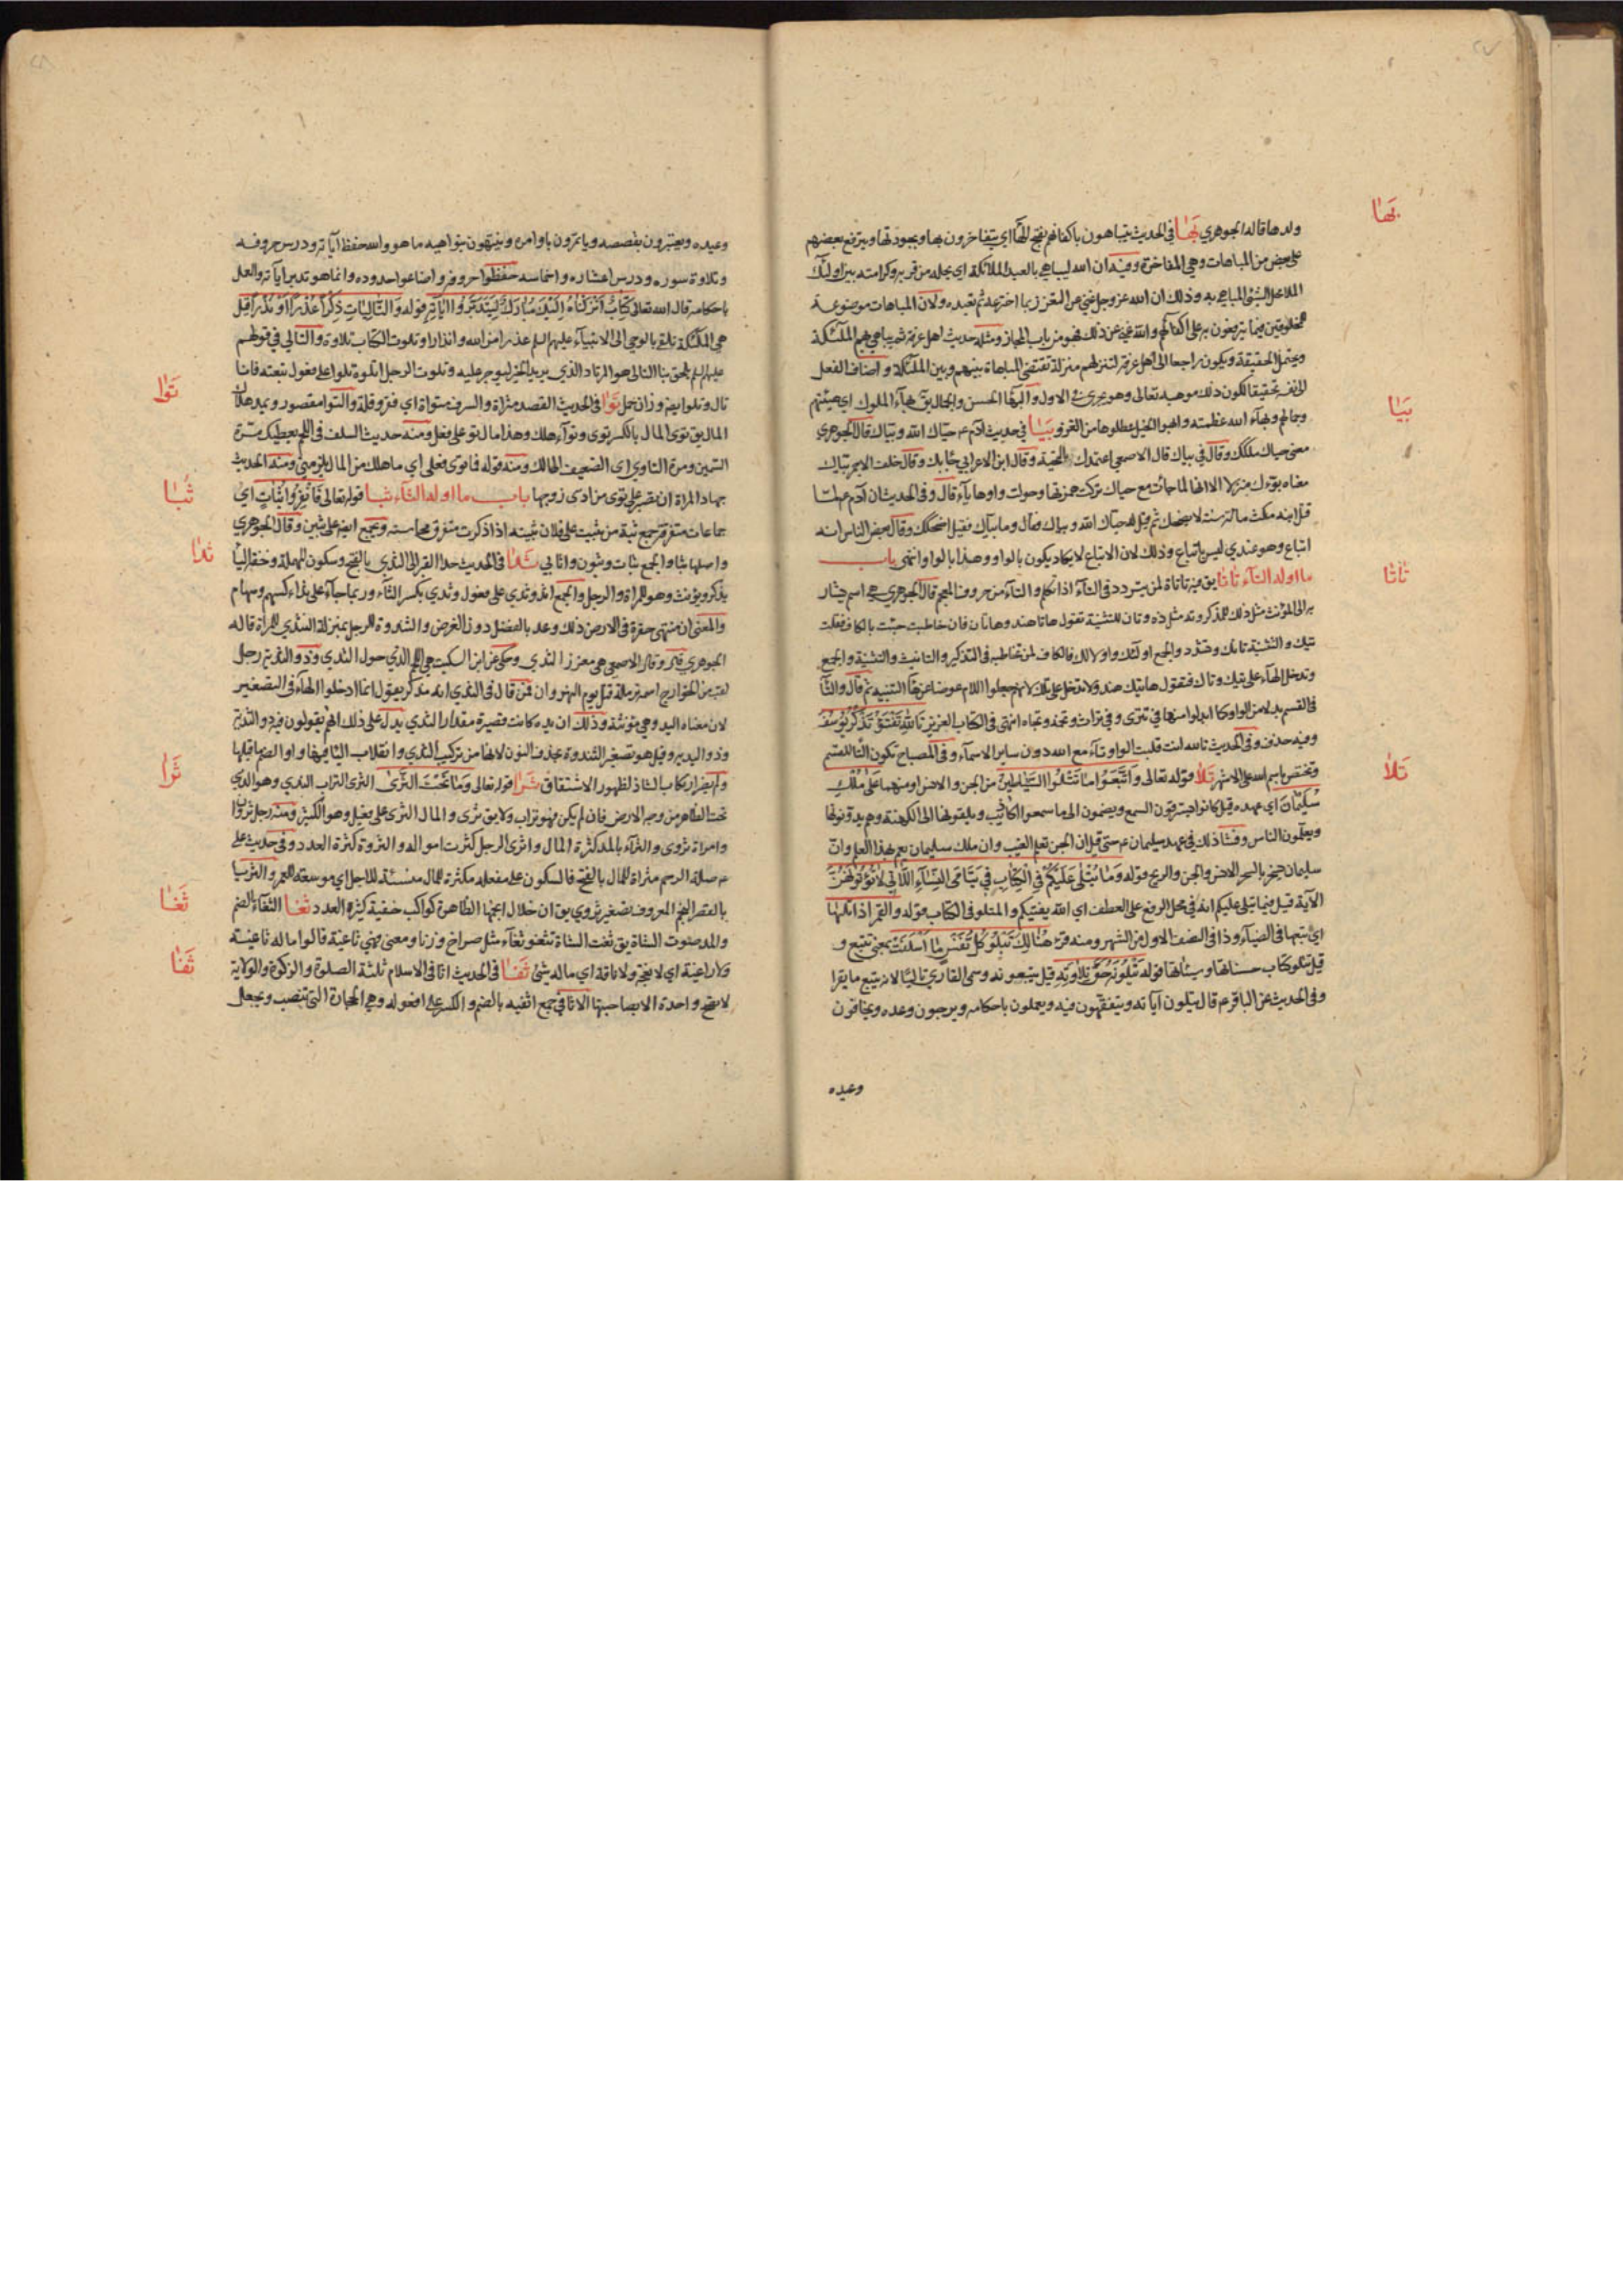 ٢٧
بَهَا
ولدها قاله الجوهري بَهَا في الحديث يتباهون باكفانهم بفتح الهآء اي يتفاخرون بها وبجودتها ويترفع بعضهم
على بعض من المباهات وهي المفاخرة وفيه ان الله ليباهي بالعبد الملائكة اي يحله من قربه وكرامته بين اولئك
الملا محل الشئ المباهى به وذلك ان الله عز وجل غني عن التعزز بما اخترعه ثم تعبده ولان المباهات موضوعة
للمخلوقين فيما يترفعون به على اكفائهم والله غني عن ذلك فهو من باب المجاز ومثله حديث اهل عرفة ثم يباهي بهم الملئكة
ويحتمل الحقيقة ويكون راجعا الى اهل عرفة لتنزلهم منزلة تقتضي المباهاة بينهم وبين الملئكة واضاف الفعل
الى نفسه تحقيقا لكون ذلك موهبه تعالى وهو والبهآء الحسن والجمال يق بهآء الملوك اي هيئتهم
بَيَا
وجمالهم وبهآء الله عظمته وابهوا الخيل عطلوها من الغزو بَيَا في حديث آدم ع حياك الله وبياك قال الجوهري
معنى حياك ملكك وقال في بياك قال الاصمعي اعتمدك بالتحية وقال ابن الاعرابي جآء بك وقال خلف الاحمر بياك
معناه بوءك منزلا الا انها لما جائت مع حياك تركت همزتها وحولت واوها يآء قال وفي الحديث ان آدم ع لما
قتل ابنه مكث مائة سنة لا يضحك ثم قيل له حياك الله وبياك فقال وما بياك فقيل اضحكك وقال بعض الناس انه
اتباع وهو عندي ليس باتباع وذلك لان الاتباع لا يكاد يكون بالواو وهذا بالواو انتهى باب
تأتا
ما اوله التآء تأتا يق فيه تاتاة لمن يتردد في التآء اذا تكلم والتآء من حروف المعجم قال الجوهري هي اسم يشار
به الى المؤنث مثل ذلك للمذكر وته مثل ذه وتان للتثنية تقول هاتا هند وهاتان فان خاطبت جئت بالكاف فقلت
تيك والتثنية تانك وتشدد والجمع اولئك واولالك فالكاف لمن تخاطب في التذكير والتانيث والتثنية والجمع
وتدخل الهآء على تيك وتاك فتقول هاتيك هند ولا تدخل على تلك لانهم جعلوا اللام عوضا عن هآء التنبيه ثم قال والتآء
في القسم بدلا من الواو كما ابدلوا منها في تترى وفي تراث وتخمه وتجاه انتهى في الكتاب العزيز تَاللهِ تَفْتَؤُ تَذْكُرُ يُوسُفَ
وفيه حذف وفي الحديث تا الله انت قلبت الواو تاء مع الله دون ساير الاسمآء وفي المصباح تكون التا للقسم
تَلَا
وتختص باسم الله على الاشهر تَلَا قوله تعالى وَاتَّبَعُوا مَا تَتْلُوا الشَّيَاطِينُ من الجن والانس او منهما عَلَى مُلْكِ
سُلَيْمَانَ اي عهده قيل كانوا يسترقون السمع ويضمون الى ما سمعوا اكاذيب ويلقونها الى الكهنة وهم يدونونها
ويعلمون الناس وفشا ذلك في عهد سليمان ع حتى قيل ان الجن تعلم الغيب وان ملك سليمان يعم بهذا العلم وان
سليمان تسخر بالسحر الانس والجن والريح قوله وَمَا يُتْلَى عَلَيْكُمْ فِي الْكِتَابِ فِي يَتَامَى النِّسَآءِ اللَّاتِي لَا تُؤْتُونَهُنَّ
الآية قيل فيما يتلى عليكم انه في محل الرفع على العطف اي الله يفتيكم والمتلو في الكتاب قوله والقمر اذا تليها
اي تبعها في الضيآء وذا في النصف الاول من الشهر ومنه قرئ هُنَالِكَ تَتْلُو كُلُّ نَفْسٍ مَا اَسْلَفَتْ بمعنى تتبع و
قيل تتلو كتاب حسناتها وسيئاتها قوله يَتْلُونَهُ حَقَّ تِلَاوَتِهِ قيل يتبعونه وسمي القاري تاليا لانه يتبع ما يقرا
وفي الحديث عن الباقر ع قال يتلون آياته ويتفقهون فيه ويعملون باحكامه ويرجون وعده ويخافون
وعيده
٢٨
وعيده ويعتبرون بقصصه وياتمرون باوامره وينتهون بنواهيه ما هو والله حفظ آياته ودرس حروفه
وتلاوة سوره ودرس اعشاره واخماسه حفظوا حروفه واضاعوا حدوده وانما هو تدبر آياته والعمل
باحكامه قال الله تعالى كِتَابٌ اَنْزَلْنَاهُ اِلَيْكَ مُبَارَكٌ لِيَدَّبَّرُوا آيَاتِهِ قوله وَالتَّالِيَاتِ ذِكْرًا عُذْرًا اَوْ نُذْرًا قيل
هي الملئكة تلقي بالوحي الى الانبيآء عليهم السلم عذرا من الله وانذارا وتلوت الكتاب تلاوة والتالي في قولهم
عليهم السلم يلحق بنا التالي هو المرتاد الذي يريد الخير ليوجر عليه وتلوت الرجل اتلوه تلوا على فعول تبعته فانا
تَوَا
تال وتلو ايضا وزان حمل تَوَا في الحديث القصد مثراة والسرف متواة اي فقر وقلة والتوا مقصور ويمد هلاك
المال يق توى المال بالكسر توى وتوآء هلك وهذا مال تو على فعل ومنه حديث السلف في اللحم يعطيك مرة
السمين ومرة التاوي اي الضعيف الهالك ومنه قوله فما توى فعلي اي ما هلك من المال يلزمني ومنه الحديث
ثُبَا
جهاد المراة ان تصبر على توى من اذى زوجها باب ما اوله الثآء ثبا قوله تعالى فَانْفِرُوا ثُبَاتٍ اي
جماعات متفرقة جمع ثبة من ثبيت على فلان تثبية اذا ذكرت متفرق محاسنه ويجمع ايضا على ثبين وقال الجوهري
ثدا
واصلها ثبا والجمع ثبات وثبون واثابي ثَدَا في الحديث حد القبر الى الثدي بالفتح وسكون المهملة وخفة اليا
يذكر ويؤنث وهو للمراة والرجل والجمع اثد وثدي على فعول وثدي بكسر الثآء وربما جآء على ثداء كسهم وسهام
والمعنى ان منتهى حفرة في الارض ذلك وعد بالفضل دون الفرض والثندوة للرجل بمنزلة الثدي للمراة قاله
الجوهري وقال الاصمعي هي مغرز الثدي وحكى عن ابن السكيت هي اللحم الذي حول الثدي وذو الثدية رجل
لقبه من الخوارج اسمه ثرملة قتل يوم النهروان فمن قال في الثدي انه مذكر يقول انما ادخلوا الهآء في التصغير
لان معناه اليد وهي مؤنثة وذلك ان يده كانت قصيرة مقدار الثدي يدل على ذلك انهم يقولون فيه ذو الثدية
وذو اليدية وقيل هو تصغير الثندوة بحذف النون لانها من تركيب الثدي وانقلاب اليا فيها واوا لضم ما قبلها
ثَرَا
ولم يضر ارتكاب الشاذ لظهور الاشتقاق ثَرَا قوله تعالى وَمَا تَحْتَ الثَّرَى الثرى التراب الندي وهو الذي
تحت الظاهر من وجه الارض فان لم يكن فهو تراب ولا يق ثرى والمال الثري على فعيل وهو الكثير ومنه رجل ثروان
وامراة ثروى والثرآء بالمد كثرة المال واثرى الرجل كثرت امواله والثروة كثرة العدد وفي حديث علي
ع صلة الرحم مثراة للمال بالفتح فالسكون على مفعلة مكثرة للمال منسئة للاجل اي موسعة للعمر والثريا
ثَغَا
بالقصر النجم المعروف تصغير ثروي يق ان خلال انجمها الظاهرة كواكب خفية كثيرة العدد ثَغَا الثغآء بالضم
والمد صوت الشاة يق ثغت الشاة تثغو ثغآء مثل صراخ وزنا ومعنى فهي ثاغية قالوا ما له ثاغية
ثَفَا
ولا راغية اي لا نعجة ولا ناقة اي ما له شئ ثَفَا في الحديث اثافي الاسلام ثلثة الصلوة والزكوة والولاية
لا تصح واحدة الا بصاحبتها الاثافي جمع اثفيه بالضم والكسر على افعوله وهي الحجارة التي تنصب ويجعل